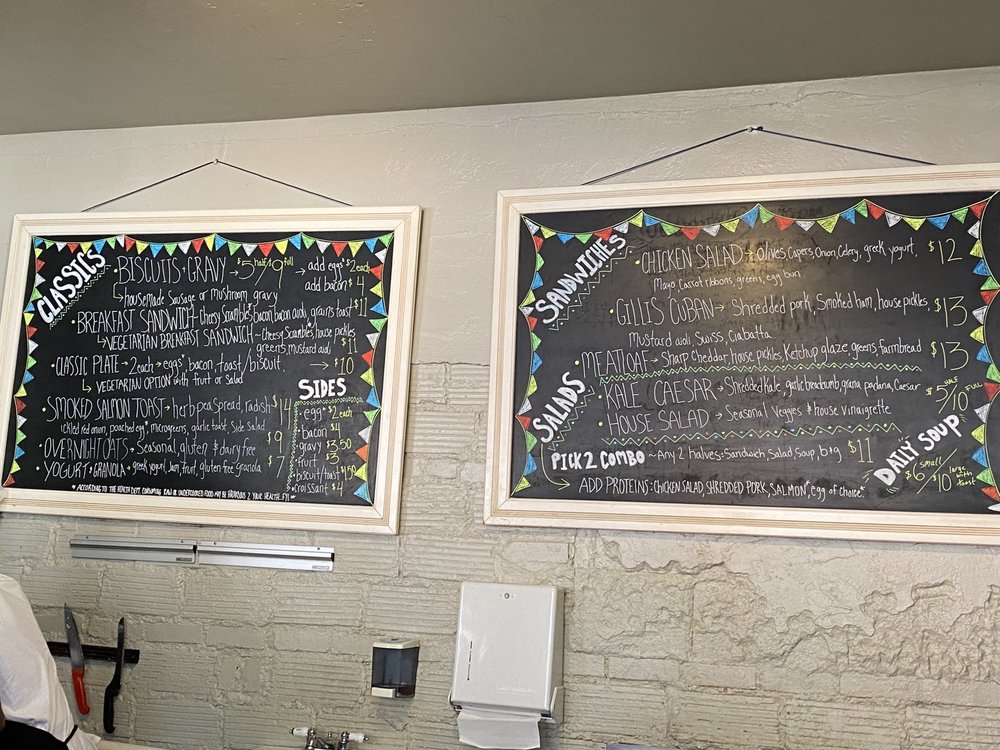 CLASSICS
• BISCUITS + GRAVY → $5 half/$9 full
→ add eggs* $2 each
add bacon $4
↳ housemade sausage or mushroom gravy
• BREAKFAST SANDWICH - Cheesy Scramble*, bacon, bacon aioli, grain toast $11
↳ VEGETARIAN BREAKFAST SANDWICH - Cheesy Scrambles, house pickles
greens, mustard aioli $11
• CLASSIC PLATE → 2 each → eggs*, bacon, toast/biscuit, → $10
↳ VEGETARIAN OPTION with fruit or salad
• SMOKED SALMON TOAST → herb pea Spread, radish $14
pickled red onion, poached egg*, microgreens, garlic toast Side Salad
• OVERNIGHT OATS - Seasonal, gluten & dairy free $9
• YOGURT + GRANOLA - greek yogurt, Jam, fruit, gluten free granola $7
* ACCORDING TO THE HEALTH DEPT. CONSUMING RAW OR UNDERCOOKED FOOD MAY BE HAZARDOUS 2 YOUR HEALTH. FYI
SIDES
• egg* $2 each
• bacon $4
• gravy $3.50
• fruit $3
• biscuit/toast $1.50
• croissant $4
SANDWICHES
• CHICKEN SALAD → Olives, Capers, Onion, Celery, greek yogurt, $12
Mayo, Carrot ribbons, greens, egg bun
• GILLIS CUBAN → Shredded pork, Smoked ham, house pickles, $13
Mustard aioli, Swiss, Ciabatta
• MEATLOAF → Sharp Cheddar, house pickles, Ketchup glaze, greens, farmbread $13
SALADS
• KALE CAESAR → Shredded Kale, garlic breadcrumb, grana padana, Caesar
• HOUSE SALAD → Seasonal Veggies & house Vinaigrette
$5 HALF/$10 FULL
PICK 2 COMBO ~ Any 2 halves: Sandwich, Salad, Soup, b+g $11
→ ADD PROTEINS: CHICKEN SALAD, SHREDDED PORK, SALMON, *egg of choice*
DAILY SOUP
$6 small/$10 large with toast